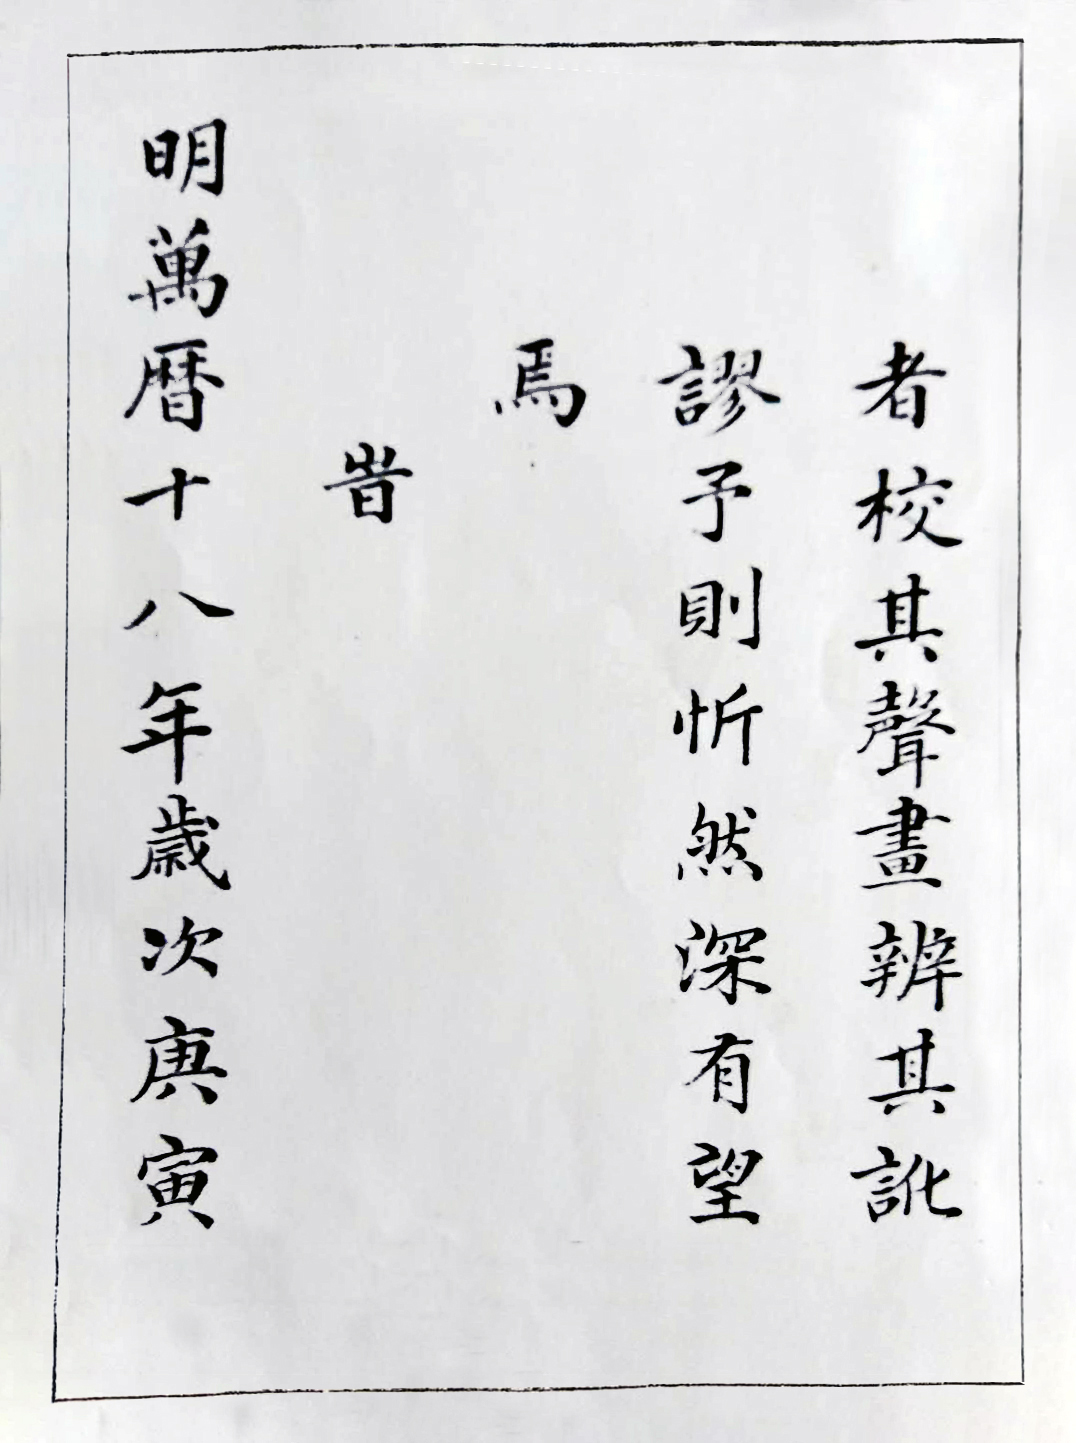 者校其聲畫辨其訛
謬予則忻然深有望
焉
旹
明萬曆十八年歲次庚寅